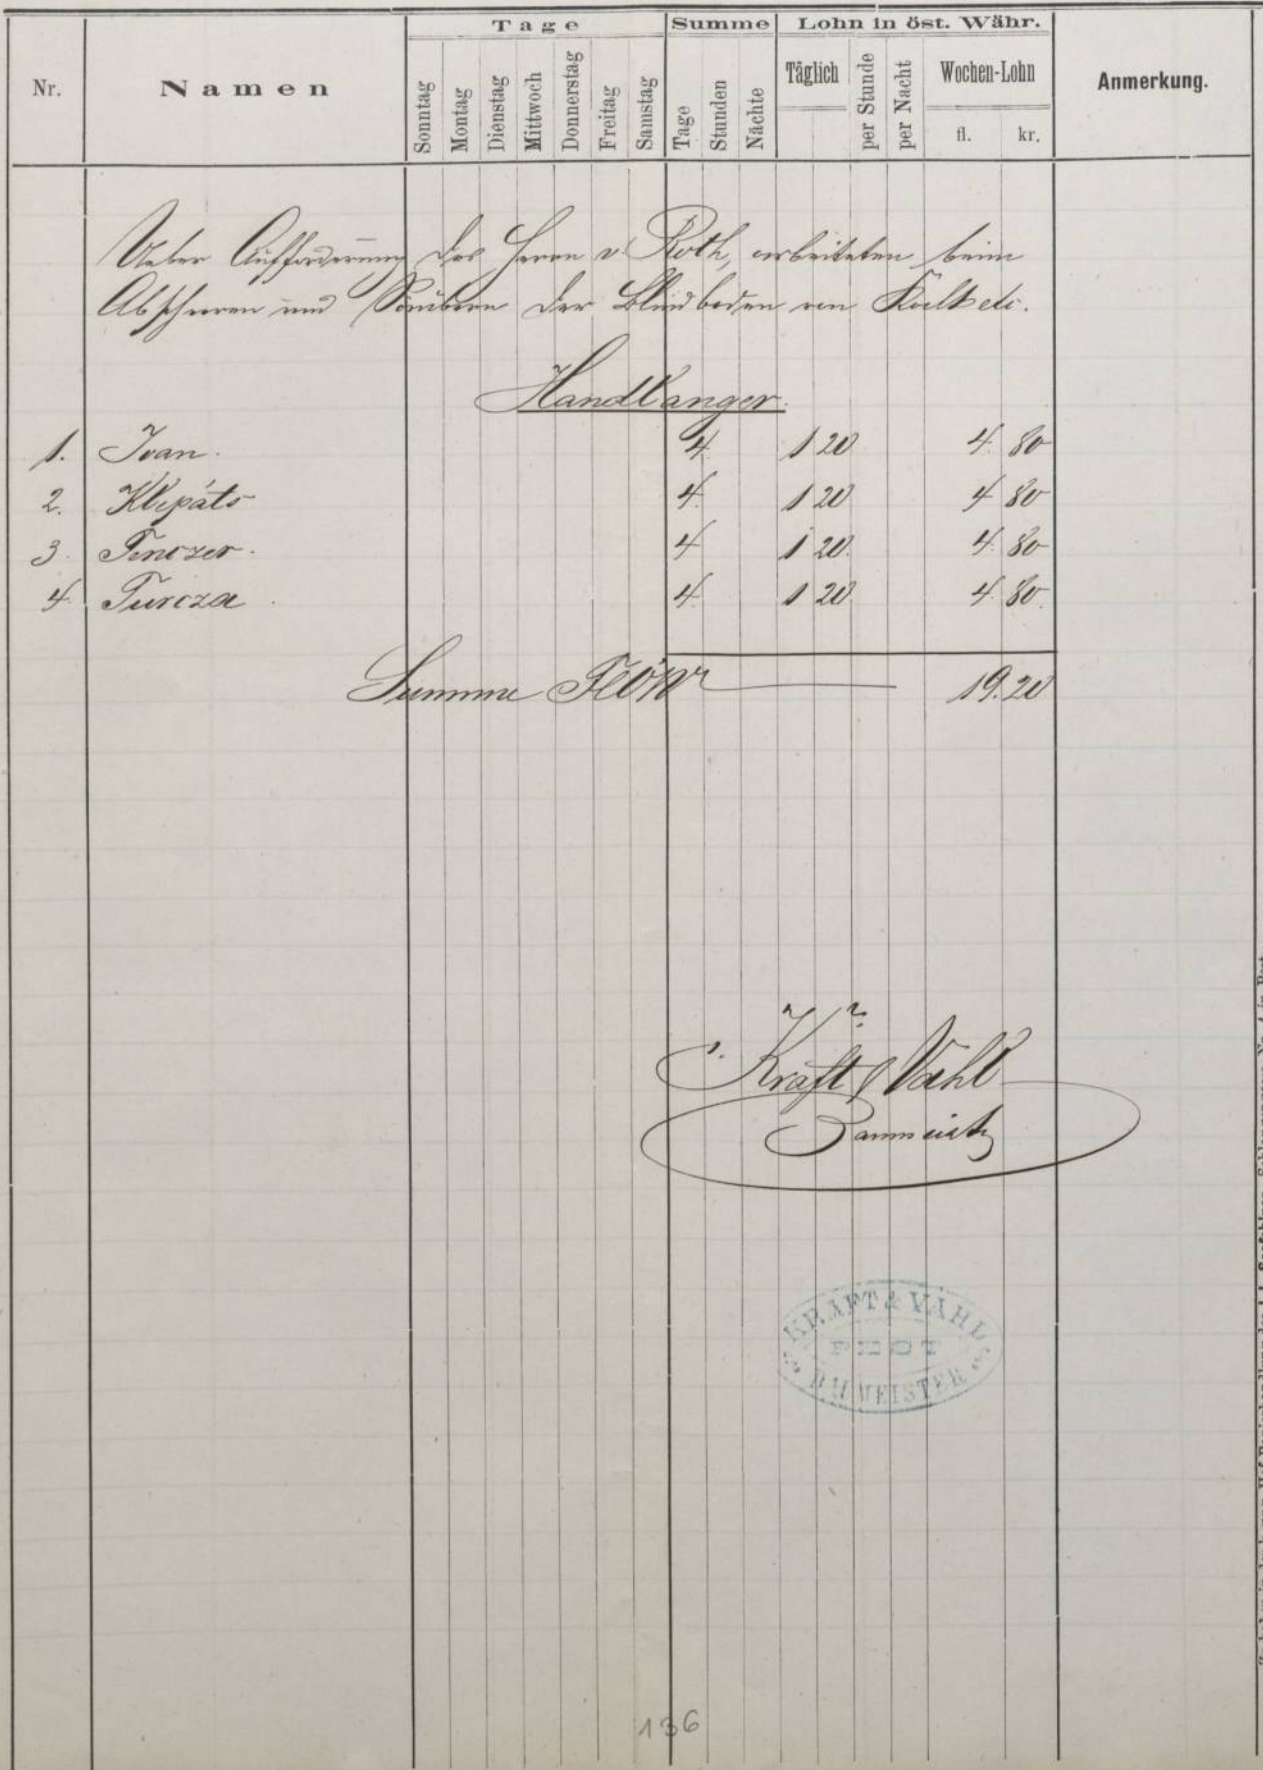 Tage Summe Lohn in öst. Währ.
Nr. Namen Sonntag Montag Dienstag Mittwoch Donnerstag Freitag Samstag Tage Stunden Nächte Täglich per Stunde per Nacht Wochen-Lohn Anmerkung.
fl. kr.
Ueber Aufforderung des Herrn v Roth, arbeiteten beim
Abscheren und Säubern der Blindboden von Kalk etc.
Handlanger.
1. Ivan. 4 1 20 4. 80
2. Klepáts 4 1 20 4 80
3. Tenczer. 4 1 20. 4. 80
4 Turcza. 4. 1 20 4. 80.
Summe Fl ö W 19.20
Kraft & Vahl
Baumeister
KRAFT & VAHL
PEST
BAUMEISTER
136